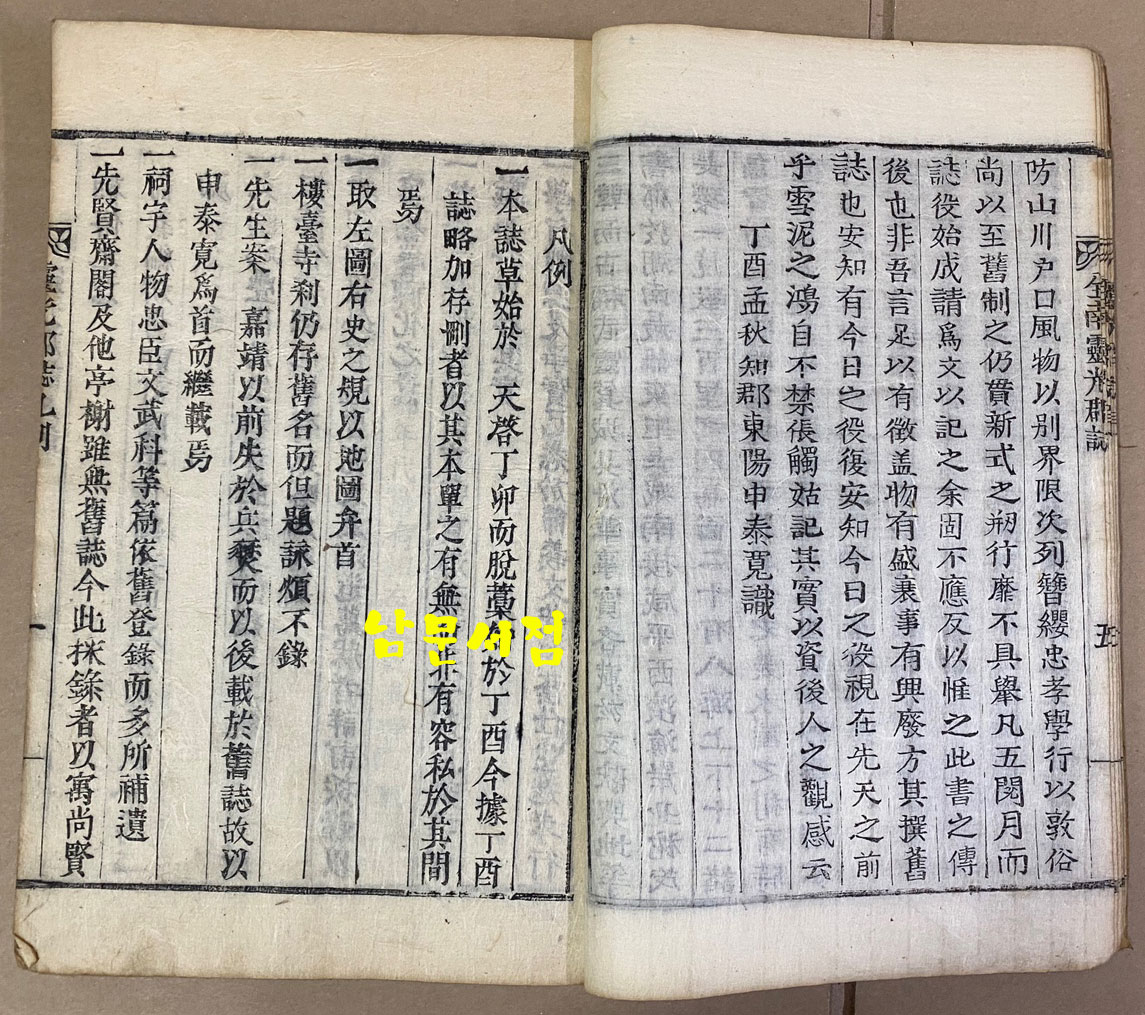 全南靈光郡誌
五
防山川户口風物以别界限次列簪纓忠孝學行以敦俗
尚以至舊制之仍貫新式之刱行靡不具擧凡五閱月而
誌役始成請爲文以記之余固不應反以惟之此書之傳
後也非吾言足以有徵盖物有盛衰事有興廢方其撰舊
誌也安知有今日之役復安知今日之役視在先天之前
乎雪泥之鴻自不禁張觸姑記其實以資後人之觀感云
丁酉孟秋知郡東陽申泰寬識
凡例
一本誌草始於 天啓丁卯而脫藁 於丁酉今據丁酉
誌略加存刪者以其本單之有無 非有容私於其間
焉
一取左圖右史之規以地圖弁首
一樓臺寺刹仍存舊名而但題詠煩不錄
一先生案 嘉靖以前失於兵燹而以後載於舊誌故以
申泰寛爲首而繼載焉
一祠宇人物忠臣文武科等篇依舊登錄而多所補遺
一先賢齋閣及他亭榭雖無舊誌今此採錄者以寓尚賢
靈光郡誌凡例
一
남문서점